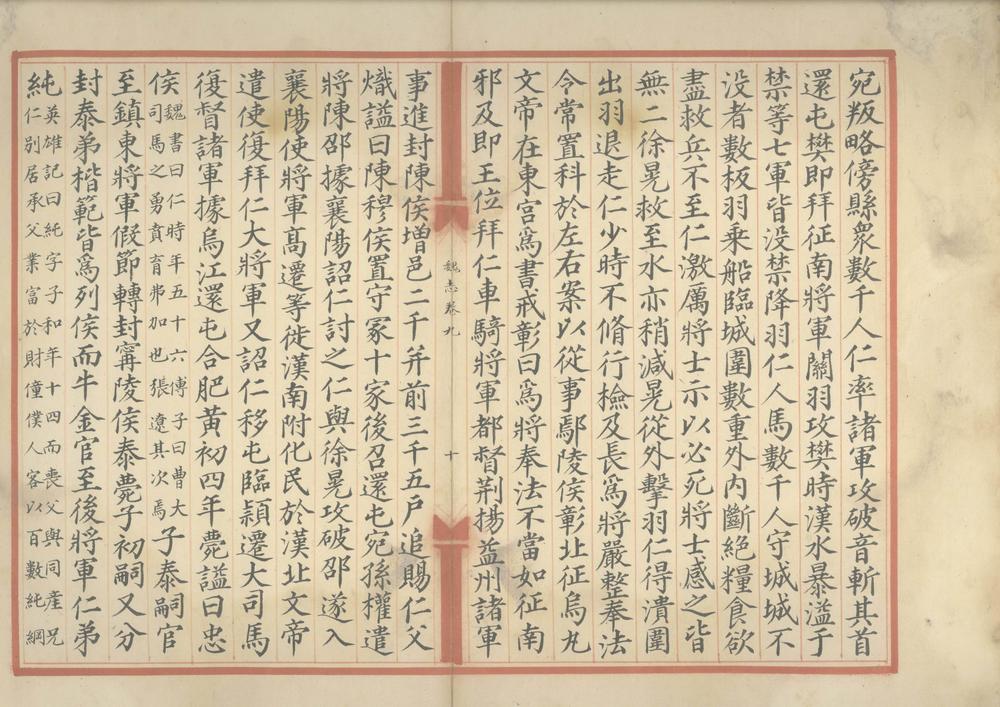 宛叛略傍縣衆數千人仁率諸軍攻破音斬其首
還屯樊即拜征南將軍關羽攻樊時漢水暴溢于
禁等七軍皆没禁降羽仁人馬數千人守城城不
没者數板羽乗船臨城圍數重外内斷絶糧食欲
盡救兵不至仁激厲將士示以必死將士感之皆
無二徐晃救至水亦稍減晃從外擊羽仁得潰圍
出羽退走仁少時不脩行檢及長爲將嚴整奉法
令常置科於左右案以從事鄢陵侯彰北征烏丸
文帝在東宮爲書戒彰曰爲將奉法不當如征南
邪及即王位拜仁車騎將軍都督荆揚益州諸軍
魏志卷九
十
事進封陳侯増邑二千并前三千五户追賜仁父
熾謚曰陳穆侯置守冢十家後召還屯宛孫權遣
將陳邵據襄陽詔仁討之仁與徐晃攻破邵遂入
襄陽使將軍高遷等徙漢南附化民於漢北文帝
遣使復拜仁大將軍又詔仁移屯臨潁遷大司馬
復督諸軍據烏江還屯合肥黄初四年薨謚曰忠
侯魏書曰仁時年五十六傅子曰曹大司馬之勇賁育弗加也張遼其次焉子泰嗣官
至鎮東將軍假節轉封寗陵侯泰薨子初嗣又分
封泰弟楷範皆爲列侯而牛金官至後將軍仁弟
純英雄記曰純字子和年十四而喪父與同產兄仁别居承父業富於財僮僕人客以百數純綱